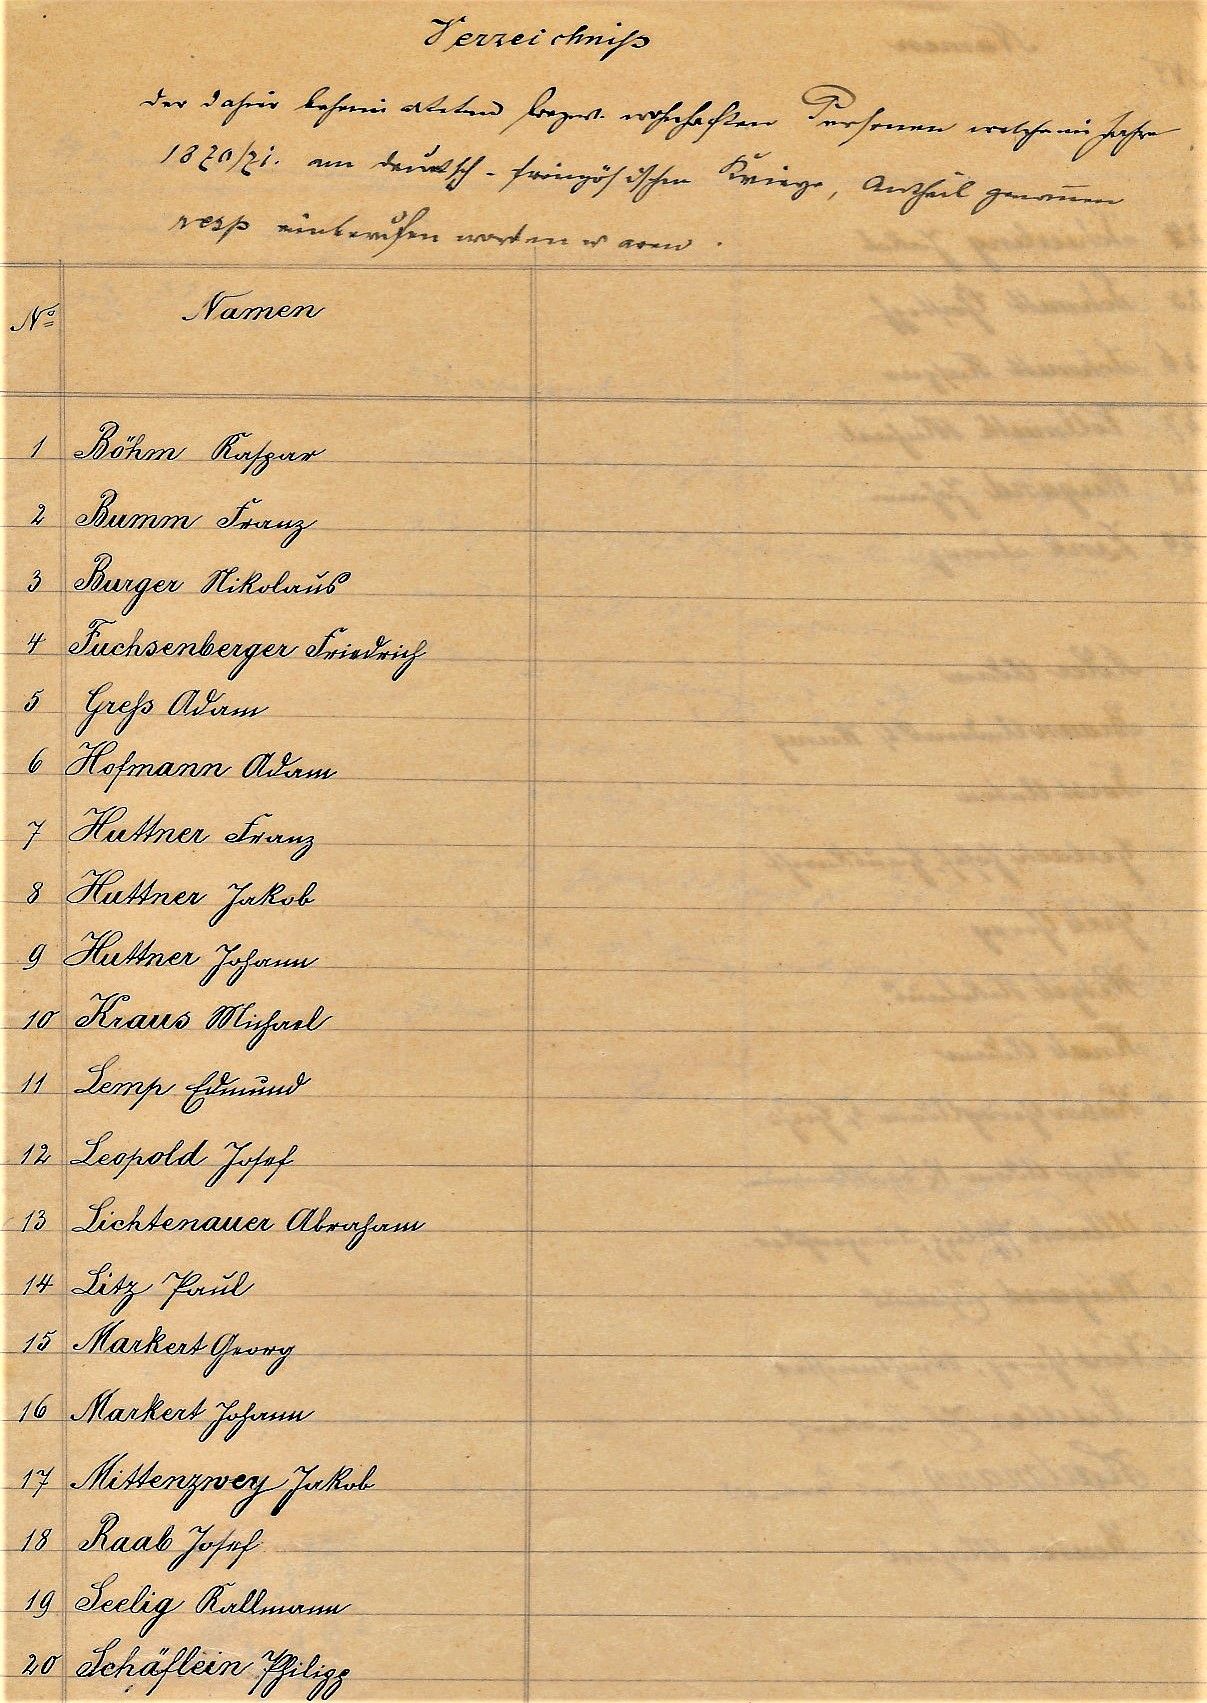 Verzeichniß
der dahier beheimateten bezw. wohnhaften Personen welche im Jahre
1870/71. am deutsch-französischen Kriege, Antheil genommen
resp einberufen worden waren.
No Namen
1 Böhm Kaspar
2 Bumm Franz
3 Burger Nikolaus
4 Fuchsenberger Friedrich
5 Greß Adam
6 Hofmann Adam
7 Huttner Franz
8 Huttner Jakob
9 Huttner Johann
10 Kraus Michael
11 Lemp Edmund
12 Leopold Josef
13 Lichtenauer Abraham
14 Litz Paul
15 Markert Georg
16 Markert Johann
17 Mittenzwey Jakob
18 Raab Josef
19 Seelig Kallmann
20 Schäflein Philipp